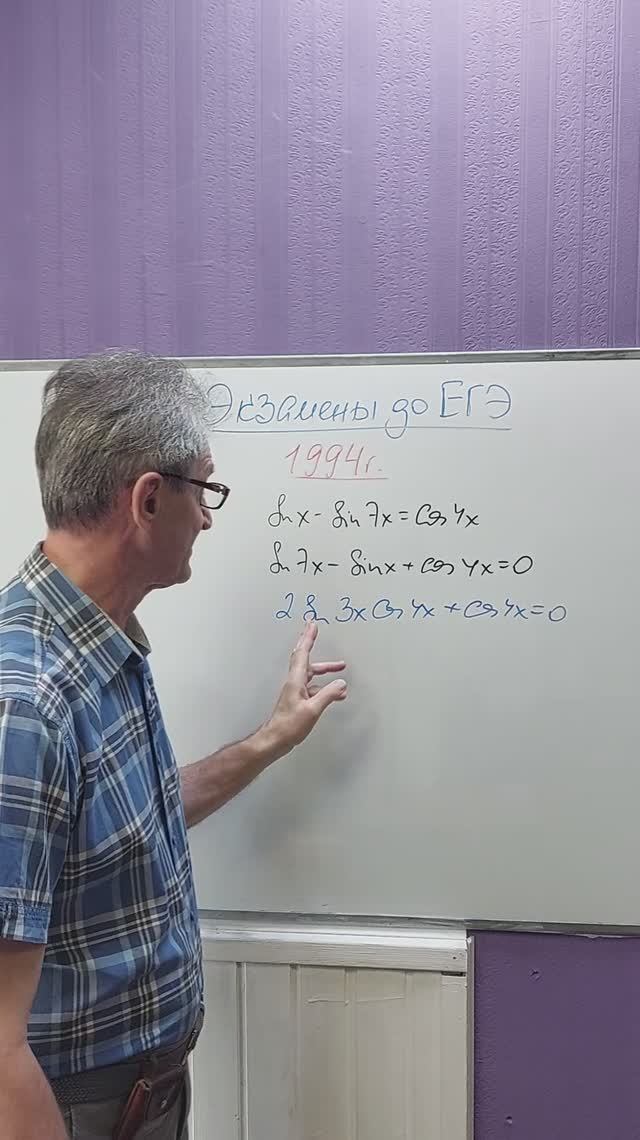 Экзамены до ЕГЭ
1994г.
sin x - sin 7x = cos 4x
sin 7x - sin x + cos 4x = 0
2 sin 3x cos 4x + cos 4x = 0